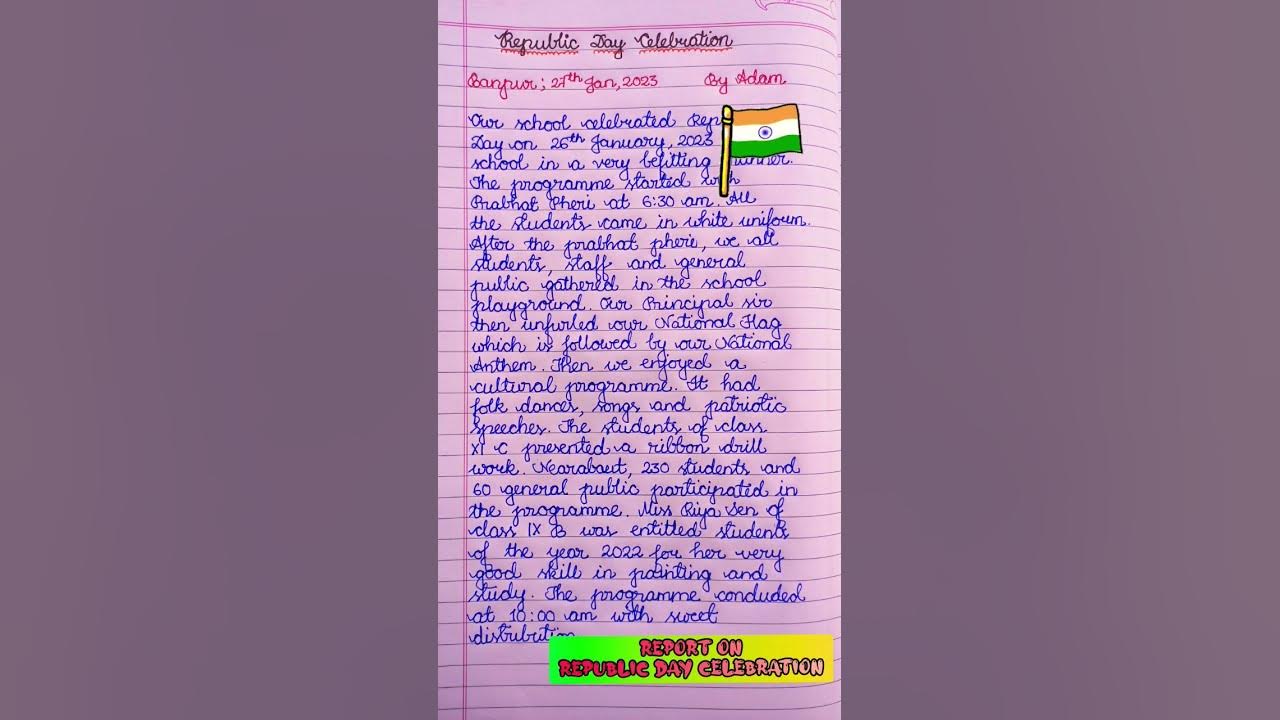 Republic Day Celebration
Banpur; 27th Jan, 2023 By Adam
Our school celebrated Rep
Day on 26th January, 2023
school in a very befitting manner.
The programme started with
Prabhat Pheri at 6:30 am. All
the students came in white uniform.
After the prabhat pheri, we all
students, staff and general
public gathered in the school
playground. Our Principal sir
then unfurled our National Flag
which is followed by our National
Anthem. Then we enjoyed a
cultural programme. It had
folk dances, songs and patriotic
speeches. The students of class
XI C presented a ribbon drill
work. Nearabout, 230 students and
60 general public participated in
the programme. Miss Riya Sen of
class IX B was entitled students
of the year 2022 for her very
good skill in painting and
study. The programme concluded
at 10:00 am with sweet
distribution
REPORT ON
REPUBLIC DAY CELEBRATION